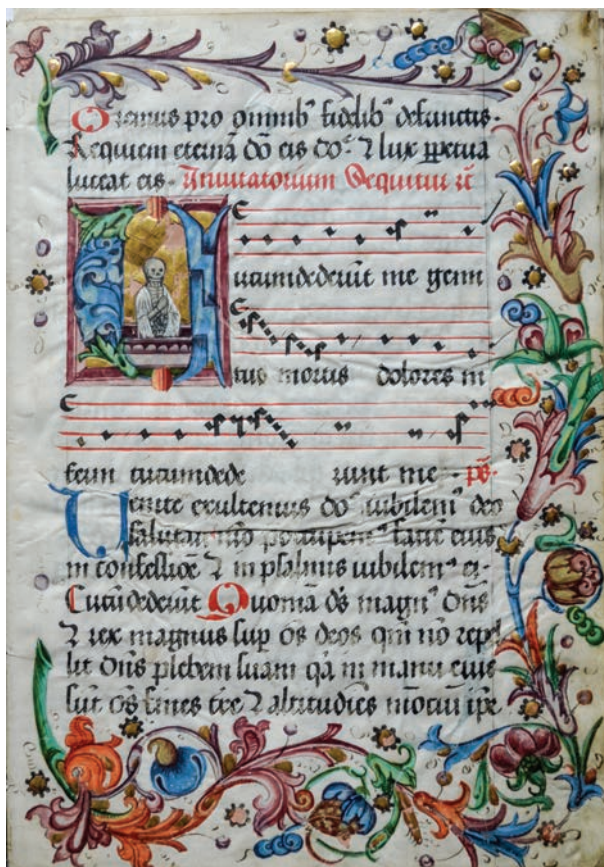 Oremus pro omnib⁹ fidelib⁹ defunctis.
Requiem eternā do eis doᵉ ⁊ lux ꝑpetua
luceat eis. Inuitatorium Sequitur
Circumdederūt me gemi
tus mortis dolores in
ferni circumdede runt me. p̄s.
Venite exultemus do° iubilem⁹ deo
salutari nr̄o faciē eius
in confessiōe ⁊ in psalmis iubilem⁹ ei.
Circūdederūt Quoniā d̄s magn⁹ dn̄s
⁊ rex magnus suꝑ oēs deos qm̄ nō repel
lit dn̄s plebem suam qā in manu eius
sūt oēs fines tr̄e ⁊ altitudīes mōtiū ip̄e